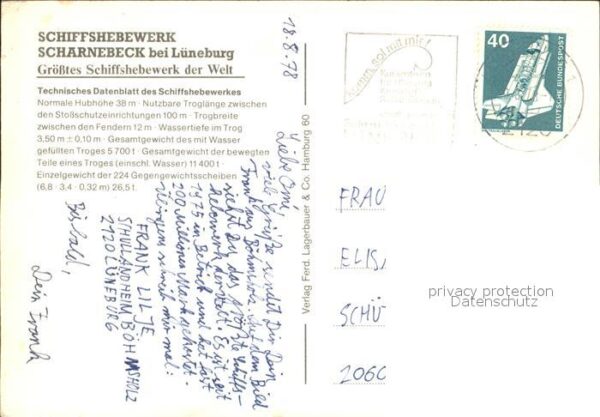 SCHIFFSHEBEWERK
SCHARNEBECK bei Lüneburg
Größtes Schiffshebewerk der Welt
Technisches Datenblatt des Schiffshebewerkes
Normale Hubhöhe 38 m · Nutzbare Troglänge zwischen
den Stoßschutzeinrichtungen 100 m · Trogbreite
zwischen den Fendern 12 m · Wassertiefe im Trog
3,50 m ± 0,10 m · Gesamtgewicht des mit Wasser
gefüllten Troges 5 700 t · Gesamtgewicht der bewegten
Teile eines Troges (einschl. Wasser) 11 400 t ·
Einzelgewicht der 224 Gegengewichtsscheiben
(6,8 · 3,4 · 0,32 m) 26,5 t.
18.8.78
Liebe Omi,
viele Grüße sendet Dir Dein
Frank aus Böhmsholz. Auf dem Bild
siehst Du das größte Schiffs-
hebewerk der Welt. Es ist seit
1975 in Betrieb und hat fast
200 Millionen Mark gekostet.
Übrigens schreib mir mal:
FRANK LILJE
SCHULLANDHEIM BÖHMSHOLZ
2120 LÜNEBURG
Bis bald,
Dein Frank
Verlag Ferd. Lagerbauer & Co. Hamburg 60
Komm, sei mit mir!
40
DEUTSCHE BUNDESPOST
2120
FRAU
ELIS
SCHÜ
2060
privacy protection
Datenschutz